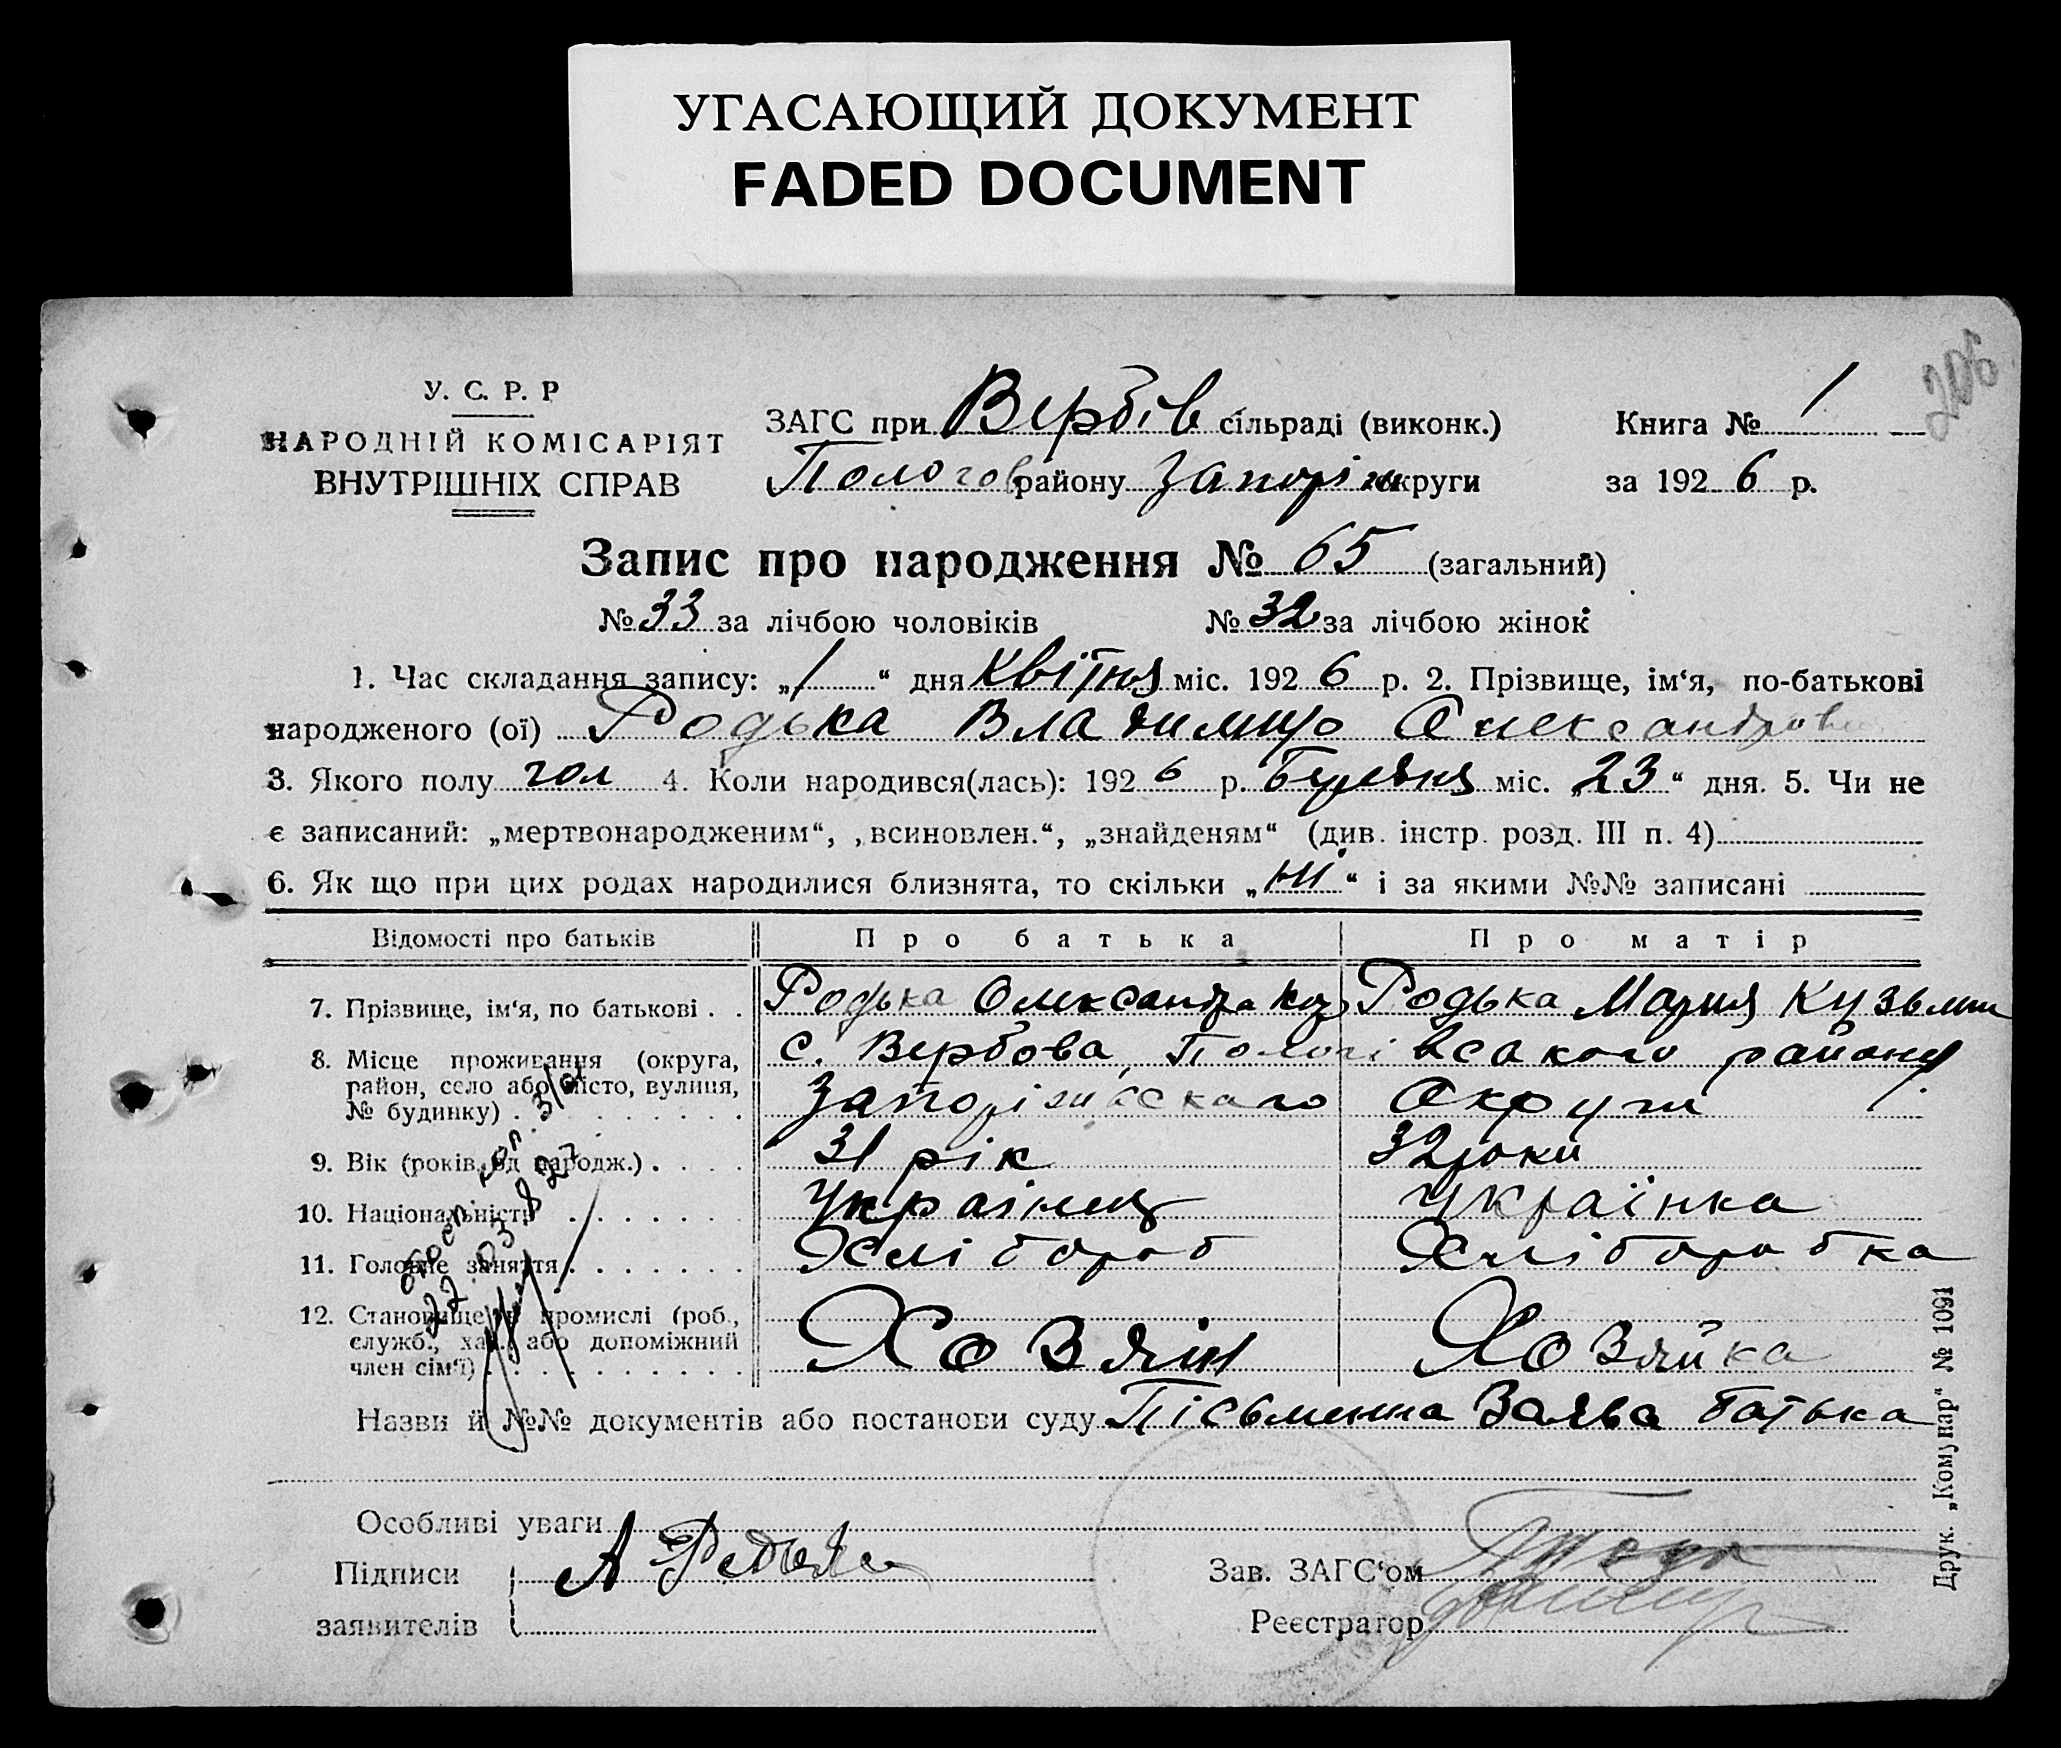 УГАСАЮЩИЙ ДОКУМЕНТ
FADED DOCUMENT
206
У. С. Р. Р
НАРОДНІЙ КОМІСАРІЯТ
ВНУТРІШНІХ СПРАВ
ЗАГС при Вербів сільраді (виконк.)
Пологов району Запоріж округи
Книга № 1
за 1926 р.
Запис про народження № 65 (загальний)
№ 33 за лічбою чоловіків № 32 за лічбою жінок
1. Час складання запису: „1“ дня Квітня міс. 1926 р. 2. Прізвище, ім‘я, по-батькові
народженого (ої) Родька Владимир Олександрови
3. Якого полу чол 4. Коли народився(лась): 1926 р. Березня міс. „23“ дня. 5. Чи не
є записаний: „мертвонародженим“, „всиновлен.“, „знайденям“ (див. інстр. розд. III п. 4)
6. Як що при цих родах народилися близнята, то скільки „ні“ і за якими №№ записані
Відомості про батьків Про батька Про матір
7. Прізвище, ім‘я, по батькові . . Родька Олександра Родька Мария Кузьмин
8. Місце проживання (округа, район, село або місто, вулиця, № будинку) с. Вербова, Пологівсакого району
Запоріжъскаго Округи
9. Вік (років від народж.) . . . . 31 рік 32 роки
10. Національність . . . . . . . Украінец Українка
11. Головне заняття . . . . . . . Хлібороб Хліборобка
12. Становище в промислі (роб., служб., хаз. або допоміжний член сім‘ї) Хозяін Хозяйка
Назви й №№ документів або постанови суду Пісьменна Заява батька
Особливі уваги
Підписи
заявителів
А Родька
Зав. ЗАГС‘ом
Реєстратор
Друк. „Комунар“ № 1091